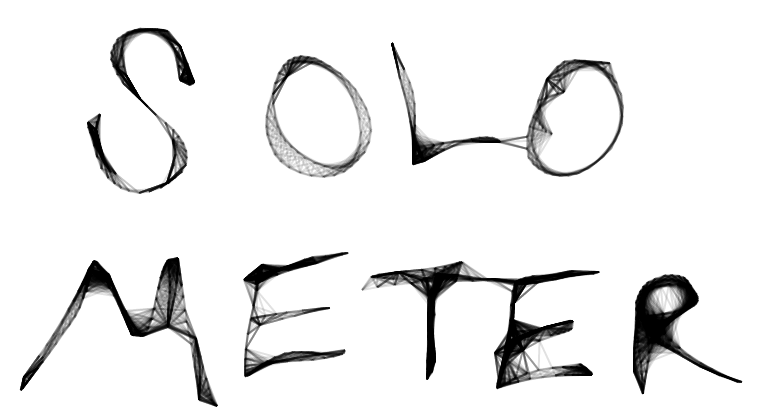 SOLO
METER